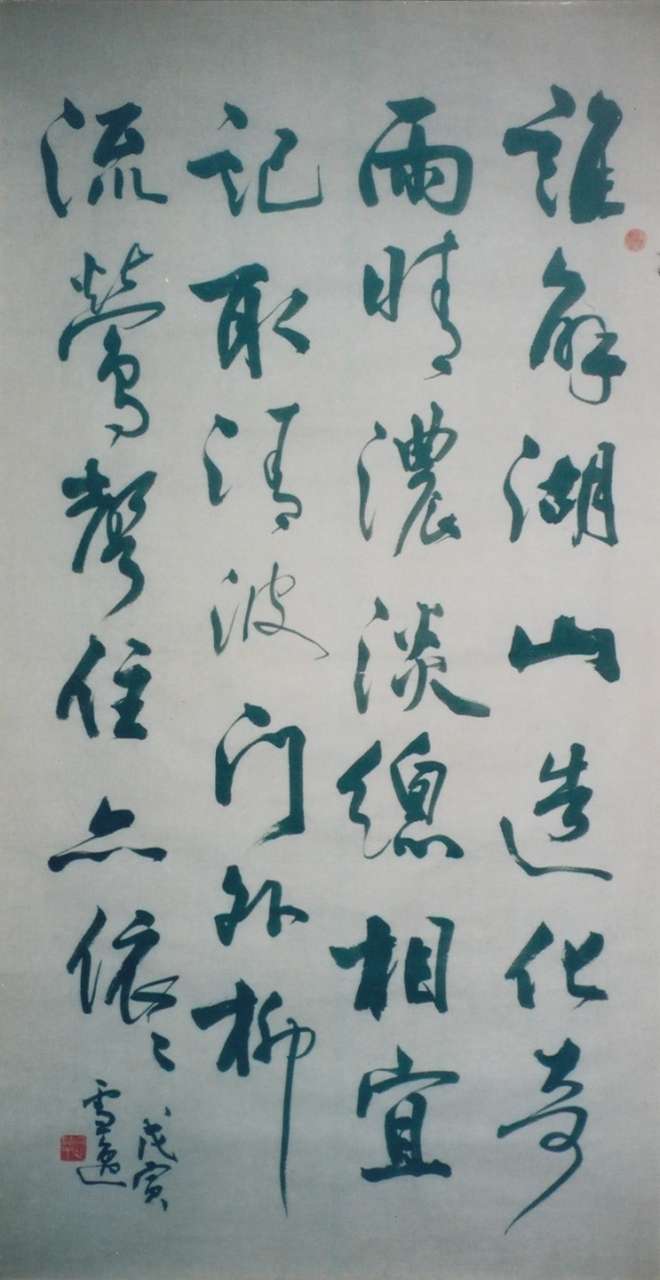 誰解湖山造化奇
雨晴濃淡總相宜
記取清波門外柳
流鶯聲住亦依〻
戊寅
雪逸